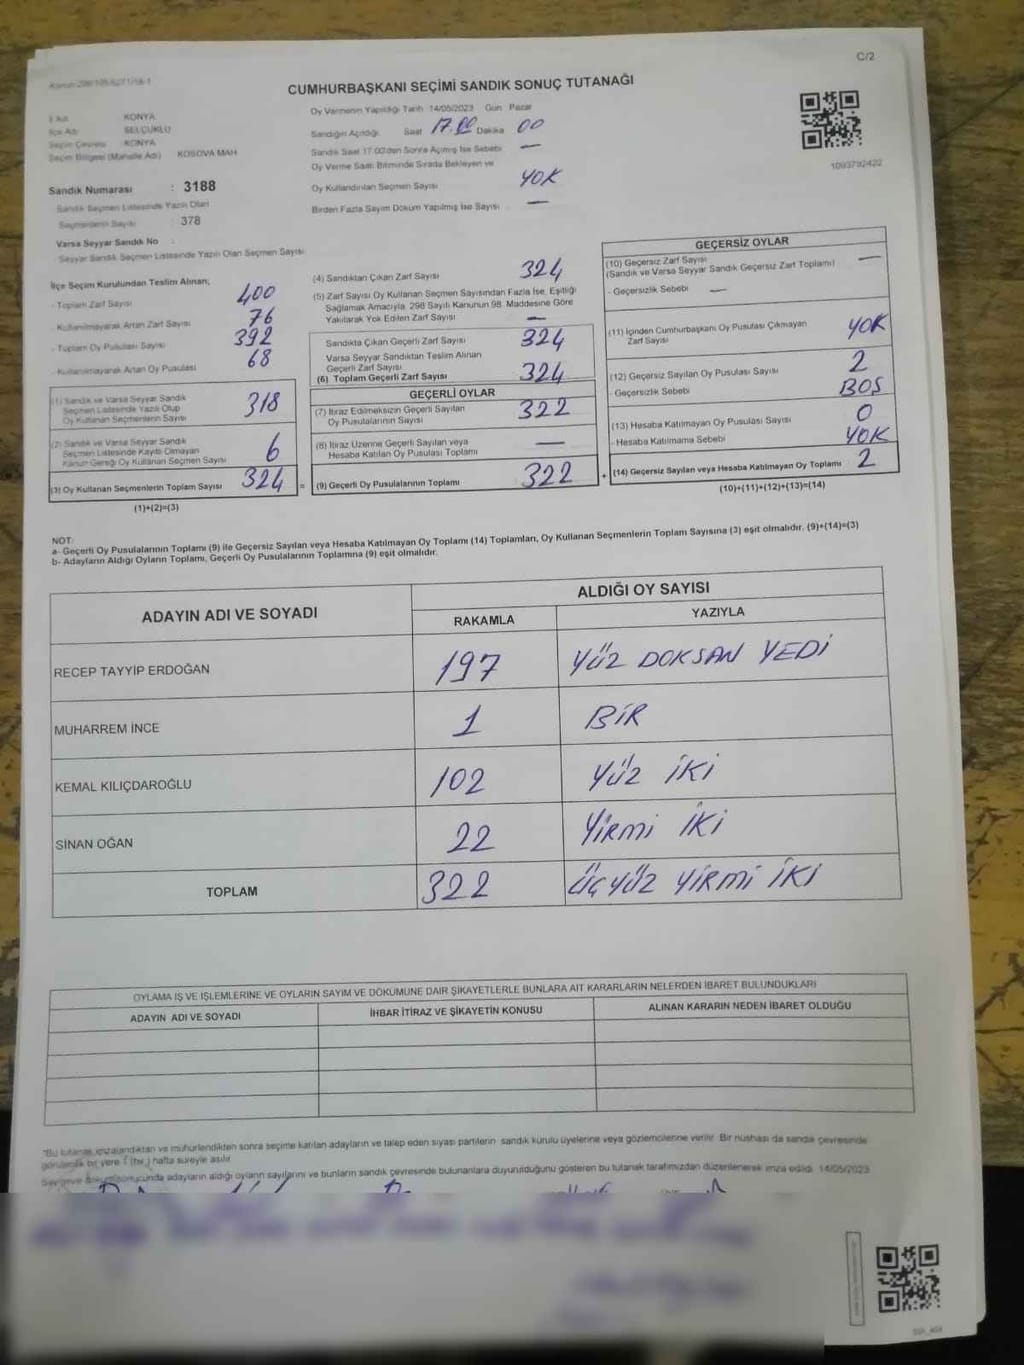 C/2
CUMHURBAŞKANI SEÇİMİ SANDIK SONUÇ TUTANAĞI
İl Adı KONYA
İlçe Adı SELÇUKLU
Seçim Çevresi KONYA
Seçim Bölgesi (Mahalle Adı) KOSOVA MAH
Sandık Numarası : 3188
Sandık Seçmen Listesinde Yazılı Olan
Seçmenlerin Sayısı : 378
Varsa Seyyar Sandık No :
Seyyar Sandık Seçmen Listesinde Yazılı Olan Seçmen Sayısı
Oy Vermenin Yapıldığı Tarih 14/05/2023 Gün Pazar
Sandığın Açıldığı Saat 17.00 Dakika 00
Sandık Saat 17.00'den Sonra Açılmış İse Sebebi —
Oy Verme Saati Bitiminde Sırada Bekleyen ve
Oy Kullandırılan Seçmen Sayısı YOK
Birden Fazla Sayım Döküm Yapılmış İse Sayısı —
1093792422
İlçe Seçim Kurulundan Teslim Alınan;
- Toplam Zarf Sayısı 400
- Kullanılmayarak Artan Zarf Sayısı 76
- Toplam Oy Pusulası Sayısı 392
- Kullanılmayarak Artan Oy Pusulası 68
(1) Sandık ve Varsa Seyyar Sandık
Seçmen Listesinde Yazılı Olup
Oy Kullanan Seçmenlerin Sayısı 318
(2) Sandık ve Varsa Seyyar Sandık
Seçmen Listesinde Kayıtlı Olmayan
Kanun Gereği Oy Kullanan Seçmen Sayısı 6
(3) Oy Kullanan Seçmenlerin Toplam Sayısı 324 =
(1)+(2)=(3)
(4) Sandıktan Çıkan Zarf Sayısı 324
(5) Zarf Sayısı Oy Kullanan Seçmen Sayısından Fazla İse, Eşitliği
Sağlamak Amacıyla 298 Sayılı Kanunun 98. Maddesine Göre
Yakılarak Yok Edilen Zarf Sayısı —
Sandıkta Çıkan Geçerli Zarf Sayısı 324
Varsa Seyyar Sandıktan Teslim Alınan
Geçerli Zarf Sayısı
(6) Toplam Geçerli Zarf Sayısı 324
GEÇERLİ OYLAR
(7) İtiraz Edilmeksizin Geçerli Sayılan
Oy Pusulalarının Sayısı 322
(8) İtiraz Üzerine Geçerli Sayılan veya
Hesaba Katılan Oy Pusulası Toplamı —
(9) Geçerli Oy Pusulalarının Toplamı 322 +
GEÇERSİZ OYLAR
(10) Geçersiz Zarf Sayısı —
(Sandık ve Varsa Seyyar Sandık Geçersiz Zarf Toplamı)
- Geçersizlik Sebebi —
(11) İçinden Cumhurbaşkanı Oy Pusulası Çıkmayan
Zarf Sayısı YOK
(12) Geçersiz Sayılan Oy Pusulası Sayısı 2
- Geçersizlik Sebebi BOŞ
(13) Hesaba Katılmayan Oy Pusulası Sayısı 0
- Hesaba Katılmama Sebebi YOK
(14) Geçersiz Sayılan veya Hesaba Katılmayan Oy Toplamı 2
(10)+(11)+(12)+(13)=(14)
NOT:
a- Geçerli Oy Pusulalarının Toplamı (9) ile Geçersiz Sayılan veya Hesaba Katılmayan Oy Toplamı (14) Toplamları, Oy Kullanan Seçmenlerin Toplam Sayısına (3) eşit olmalıdır. (9)+(14)=(3)
b- Adayların Aldığı Oyların Toplamı, Geçerli Oy Pusulalarının Toplamına (9) eşit olmalıdır.
ADAYIN ADI VE SOYADI ALDIĞI OY SAYISI
RAKAMLA YAZIYLA
RECEP TAYYİP ERDOĞAN 197 YÜZ DOKSAN YEDİ
MUHARREM İNCE 1 BİR
KEMAL KILIÇDAROĞLU 102 YÜZ İKİ
SİNAN OĞAN 22 YİRMİ İKİ
TOPLAM 322 ÜÇYÜZ YİRMİ İKİ
OYLAMA İŞ VE İŞLEMLERİNE VE OYLARIN SAYIM VE DÖKÜMÜNE DAİR ŞİKAYETLERLE BUNLARA AİT KARARLARIN NELERDEN İBARET BULUNDUKLARI
ADAYIN ADI VE SOYADI İHBAR İTİRAZ VE ŞİKAYETİN KONUSU ALINAN KARARIN NEDEN İBARET OLDUĞU
"Bu tutanak imzalandıktan ve mühürlendikten sonra seçime katılan adayların ve talep eden siyasi partilerin sandık kurulu üyelerine veya gözlemcilerine verilir. Bir nüshası da sandık çevresinde
görülecek bir yere 1 (bir) hafta süreyle asılır.
Sayım ve dökümü sonucunda adayların aldığı oyların sayılarını ve bunların sandık çevresinde bulunanlara duyurulduğunu gösteren bu tutanak tarafımızdan düzenlenerek imza edildi. 14/05/2023